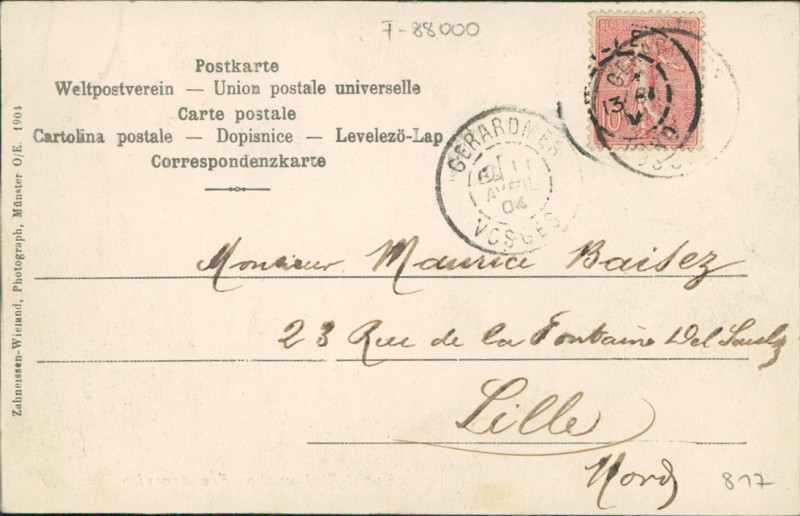 7-88000
Postkarte
Weltpostverein — Union postale universelle
Carte postale
Cartolina postale — Dopisnice — Levelezö-Lap
Correspondenzkarte
GERARDMER
11
AVRIL
04
VOSGES
10
Monsieur Maurice Baisez
23 Rue de la Fontaine Del Saulx
Lille
Nord
817
Zahneissen-Wieland, Photograph, Münster O/E. 1904